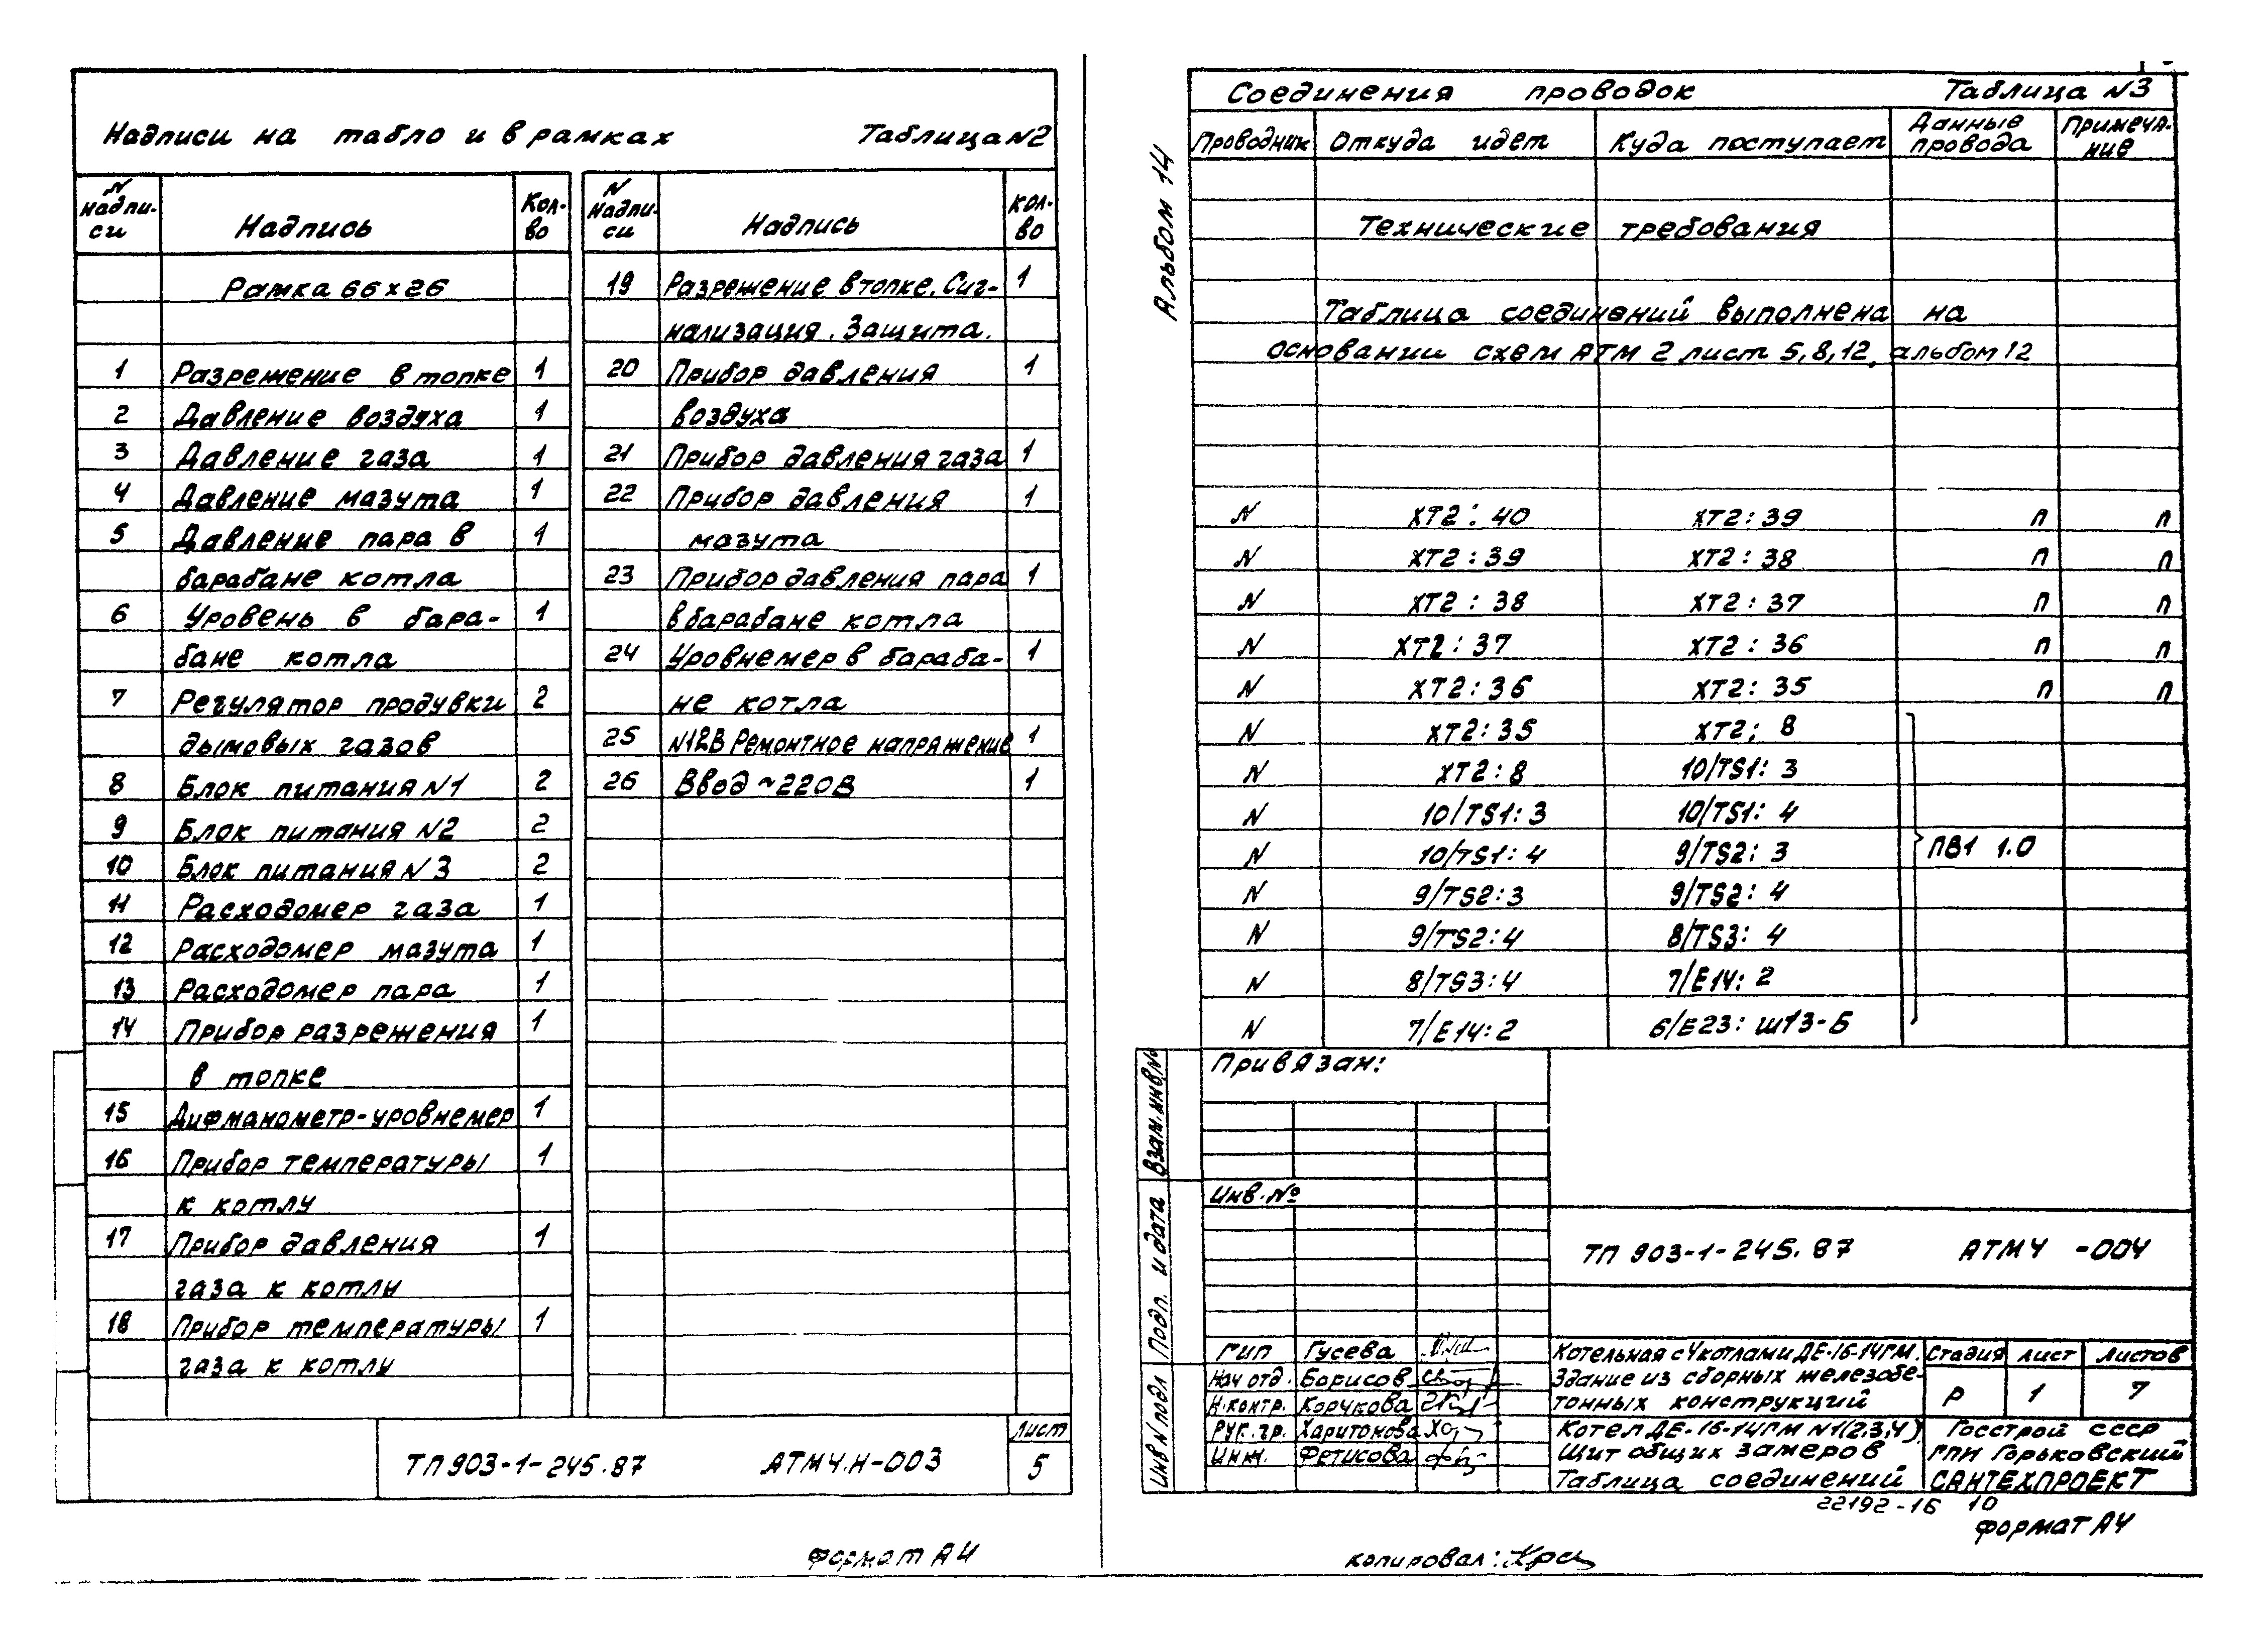 Надписи на табло и в рамках Таблица N2
N надпи- си Надпись Кол- во
Рамка 66×26
1 Разрежение в топке 1
2 Давление воздуха 1
3 Давление газа 1
4 Давление мазута 1
5 Давление пара в 1
барабане котла
6 Уровень в бара- 1
бане котла
7 Регулятор продувки 2
дымовых газов
8 Блок питания N1 2
9 Блок питания N2 2
10 Блок питания N3 2
11 Расходомер газа 1
12 Расходомер мазута 1
13 Расходомер пара 1
14 Прибор разрежения 1
в топке
15 Дифманометр-уровнемер 1
16 Прибор температуры 1
к котлу
17 Прибор давления 1
газа к котлу
18 Прибор температуры 1
газа к котлу
N надпи- си Надпись Кол- во
19 Разрежение в топке. Сиг- 1
нализация. Защита.
20 Прибор давления 1
воздуха
21 Прибор давления газа 1
22 Прибор давления 1
мазута
23 Прибор давления пара 1
в барабане котла
24 Уровнемер в бараба- 1
не котла
25 N12В Ремонтное напряжение 1
26 Ввод ~220В 1
Лист
ТП 903-1-245.87 АТМ4.Н-003 5
Формат А4
Альбом 14
Соединения проводок Таблица N3
Проводник Откуда идет Куда поступает Данные провода Примеча- ние
Технические требования
Таблица соединений выполнена на
основании схем АТМ 2 лист 5,8,12, альбом 12
N ХТ2:40 ХТ2:39 п п
N ХТ2:39 ХТ2:38 п п
N ХТ2:38 ХТ2:37 п п
N ХТ2:37 ХТ2:36 п п
N ХТ2:36 ХТ2:35 п п
N ХТ2:35 ХТ2; 8
N ХТ2:8 10/TS1: 3
N 10/TS1:3 10/TS1: 4
N 10/TS1:4 9/TS2: 3 ПВ1 1.0
N 9/TS2:3 9/TS2: 4
N 9/TS2:4 8/TS3: 4
N 8/TS3:4 7/Е14: 2
N 7/Е14:2 6/Е23: Ш13-Б
Привязан:
Инв.№
Взам.инв.№
Подп. и дата
Инв N подл
ТП 903-1-245.87 АТМ4 -004
ГИП Гусева
Нач отд. Борисов
Н.контр. Корчкова
Рук.гр. Харитонова
Инж. Фетисова
Котельная с 4 котлами ДЕ-16-14ГМ.
Здание из сборных железобе-
тонных конструкций
Стадия Лист Листов
Р 1 7
Котел ДЕ-16-14ГМ N1(2,3,4)
Щит общих замеров
Таблица соединений
Госстрой СССР
ГПИ Горьковский
САНТЕХПРОЕКТ
22192-16 10
Формат А4
Копировал: